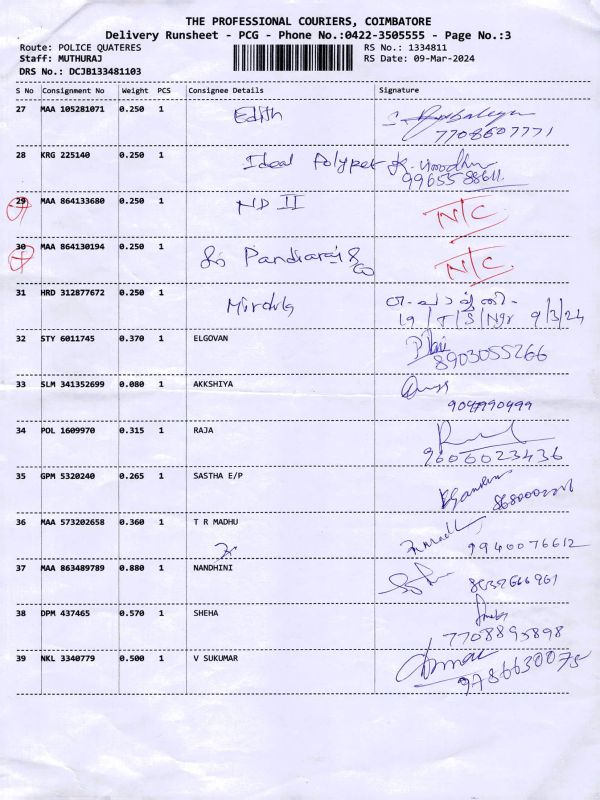 THE PROFESSIONAL COURIERS, COIMBATORE
Delivery Runsheet - PCG - Phone No.:0422-3505555 - Page No.:3
Route: POLICE QUATERES RS No.: 1334811
Staff: MUTHURAJ RS Date: 09-Mar-2024
DRS No.: DCJB133481103
S No Consignment No Weight PCS Consignee Details Signature
27 MAA 105281071 0.250 1 Edith
7708607771
28 KRG 225140 0.250 1 Ideal Polypet
9965588611
29 MAA 864133680 0.250 1 ND II N/C
30 MAA 864130194 0.250 1 Sri Pandiaraj & Co N/C
31 HRD 312877672 0.250 1 Mirdula
19/T/S/Ngr 9/3/24
32 STY 6011745 0.370 1 ELGOVAN
8903055266
33 SLM 341352699 0.080 1 AKKSHIYA
34 POL 1609970 0.315 1 RAJA
9606023436
35 GPM 5320240 0.265 1 SASTHA E/P
36 MAA 573202658 0.360 1 T R MADHU
9940076612
37 MAA 863489789 0.880 1 NANDHINI
38 DPM 437465 0.570 1 SHEHA
7708895898
39 NKL 3340779 0.500 1 V SUKUMAR
9786630075